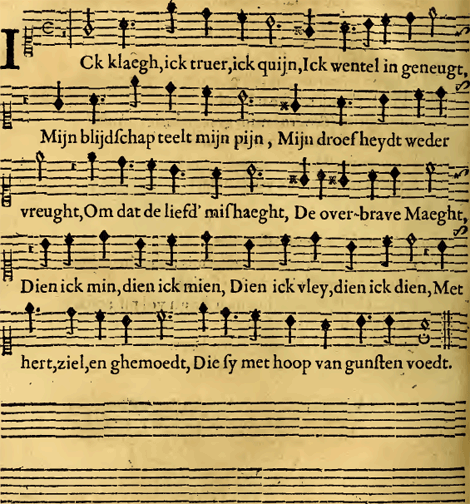 ICk klaegh,ick truer,ick quijn,Ick wentel in geneugt,
Mijn blijdſchap teelt mijn pijn , Mijn droefheydt weder
vreught,Om dat de liefd' miſhaeght, De over-brave Maeght,
Dien ick min,dien ick mien, Dien ick vley,dien ick dien,Met
hert,ziel,en ghemoedt, Die ſy met hoop van gunſten voedt.